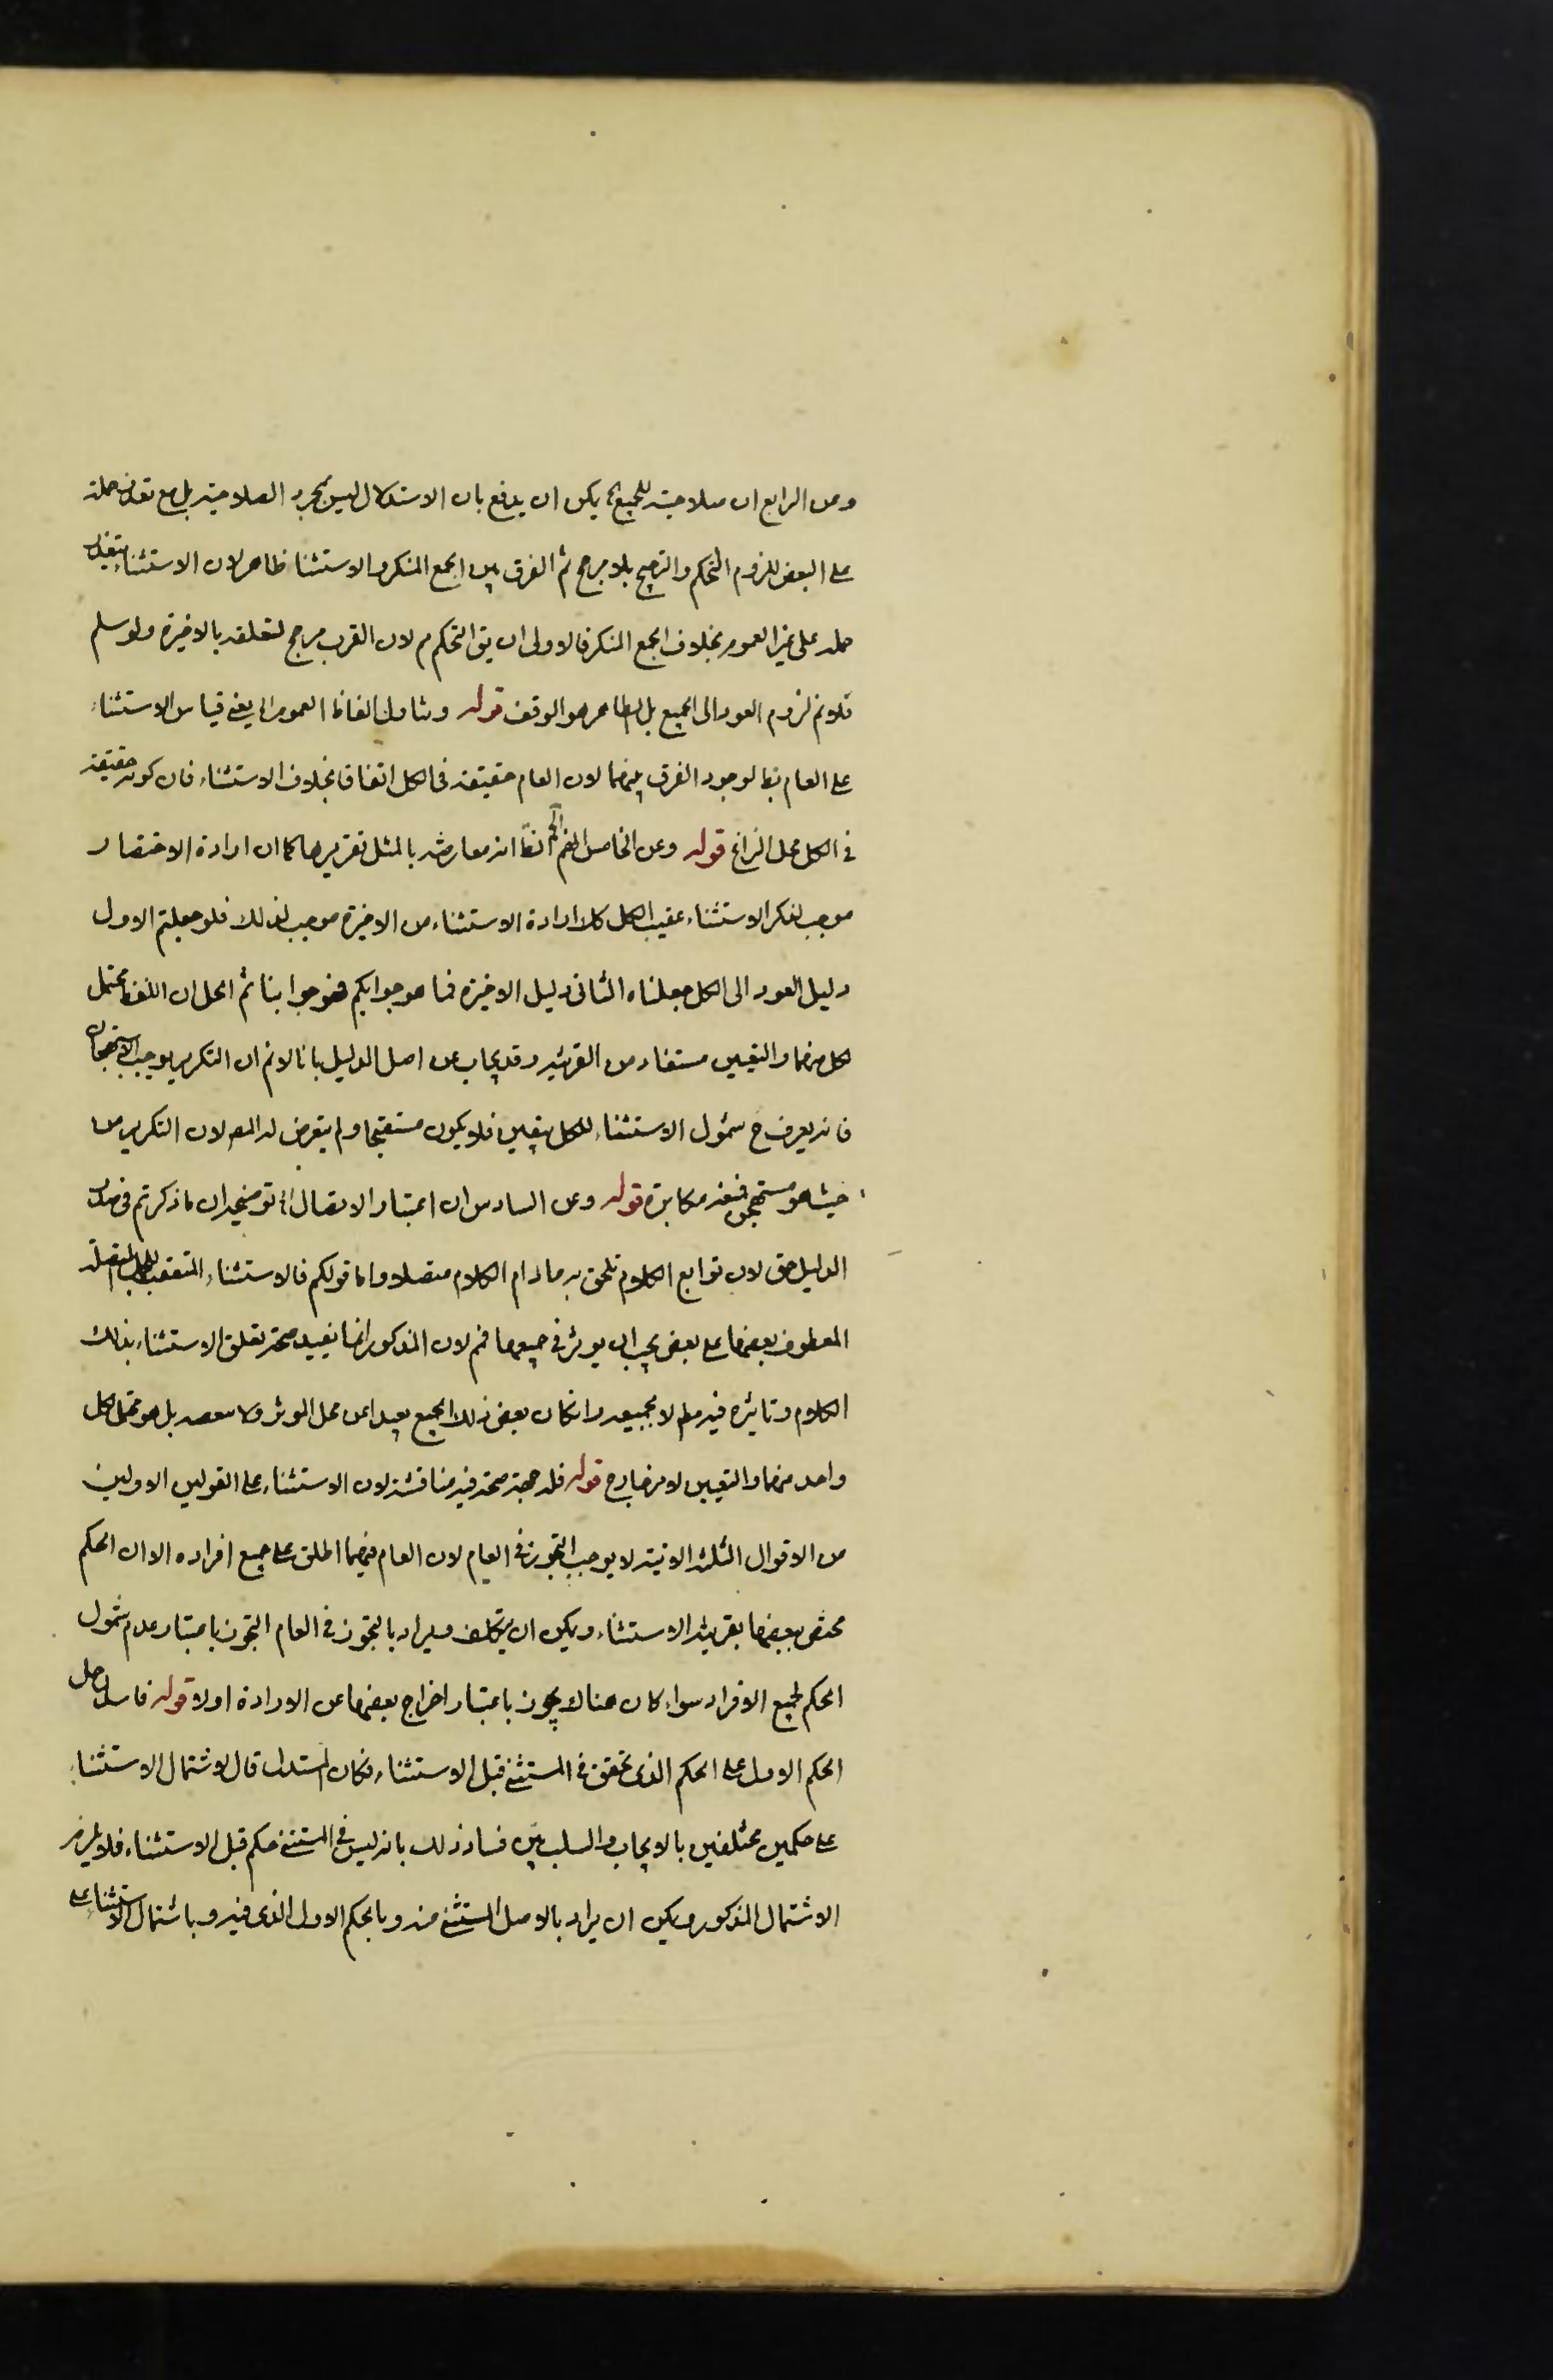 وعن الرابع ان صلاحيته للجميع الخ يمكن ان يدفع بان الاستدلال ليس بمجرد الصلاحية بل مع تعذر حمله
على البعض للزوم التحكم والترجيح بلا مرجح ثم الفرق بين الجمع المنكر والاستثنا ظاهر لان الاستثناء يتعذر
حمله على غير العموم بخلاف الجمع المنكر فالاولى ان يق التحكم م لان القرب مرجح لتعلقه بالاخيرة ولو سلم
فلا نم لزوم العود الى الجميع بل الظاهر هو الوقف قوله وتناول الفاظ العموم الخ يعني قياس الاستثناء
على العام بط لوجود الفرق بينهما لان العام حقيقة في الكل اتفاقا بخلاف الاستثناء فان كونه حقيقة
في الكل محل النزاع قوله وعن الخامس انكم الخ انه معارضة بالمثل تقريرها كما ان ارادة الاختصار
موجب لذكر الاستثناء عقيب الكل كك ارادة الاستثناء من الاخيرة موجب لذلك فلو جعلتم الاول
دليل العود الى الكل جعلناه الثاني دليل الاخيرة فما هو جوابكم فهو جوابنا ثم الحل ان اللفظ محتمل
لكل منهما والتعيين مستفاد من القرينة وقد يجاب عن اصل الدليل بانا لا نم ان التكرير يوجب الاستهجان
فانه يعرف ح شمول الاستثناء للكل بيقين فلا يكون مستقبحا ولم يتعرض له المص لان التكرير من
حيث هو مستهجن فمنعه مكابرة قوله وعن السادس ان اعتبار الاتصال الخ توضيحه ان ما ذكرتم في صدر
الدليل حق لان توابع الكلام تلحق به ما دام الكلام متصلا واما قولكم فالاستثناء المتعقب للجمل المتصلة
المعطوف بعضها على بعض يجب ان يوثر في جميعها فم لان المذكور انما يفيد صحة تعلق الاستثناء بذلك
الكلام وتاثيره فيه مط لا بجميعه وان كان بعض ذلك الجميع بعيدا عن محل الموثر ولا ببعضه بل هو محتمل لكل
واحد منهما والتعيين لامر خارج قوله فله جهة صحة فيه مناقشة لان الاستثناء على القولين الاولين
من الاقوال الثلثة الاتية لا يوجب التجوز في العام لان العام فيهما اطلق على جميع افراده الا ان الحكم
مختص ببعضها بقرينة الاستثناء ويمكن ان يتكلف ويراد بالتجوز في العام التجوز باعتبار عدم شمول
الحكم لجميع الافراد سواء كان هناك تجوز باعتبار اخراج بعضها عن الارادة اولا قوله فاسد حمل
الحكم الاول على الحكم الذي تحقق في المستثنى قبل الاستثناء فكان المستدل قال لاشتمال الاستثناء
على حكمين مختلفين بالايجاب والسلب بين فساد ذلك بانه ليس في المستثنى حكم قبل الاستثناء فلا يلزم
الاشتمال المذكور ويمكن ان يراد بالاصل المستثنى منه وبالحكم الاول الذي فيه وباشتمال الاستثناء على